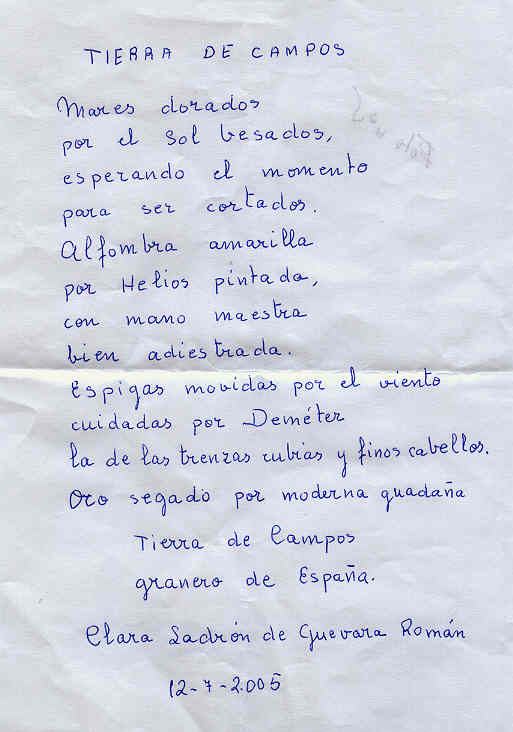 TIERRA DE CAMPOS
Mares dorados
por el sol besados,
esperando el momento
para ser cortados.
Alfombra amarilla
por Helios pintada,
con mano maestra
bien adiestrada.
Espigas movidas por el viento
cuidadas por Deméter
la de las trenzas rubias y finos cabellos.
Oro segado por moderna guadaña
Tierra de Campos
granero de España.
Clara Ladrón de Guevara Román
12-7-2.005